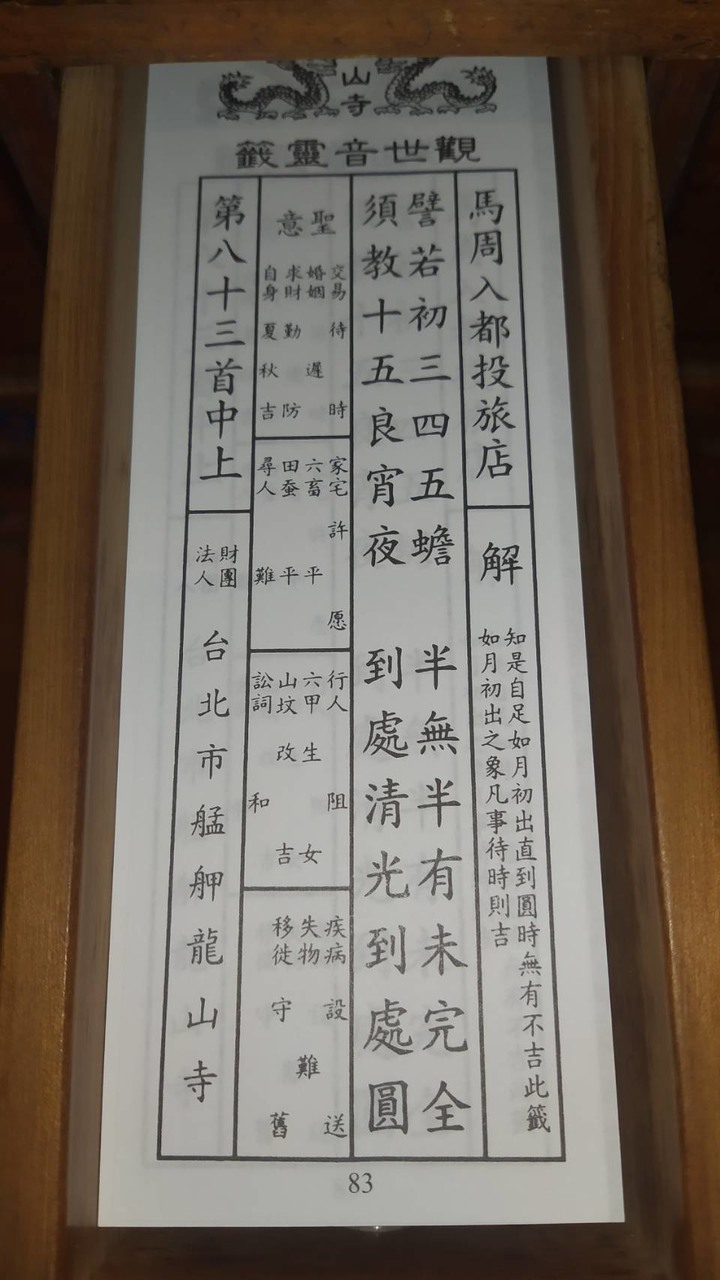 山寺
觀世音靈籤
馬周入都投旅店
解
知是自足如月初出直到圓時無有不吉此籤
如月初出之象凡事待時則吉
譬若初三四五蟾 半無半有未完全
須教十五良宵夜 到處清光到處圓
聖意
交易 待時
婚姻 遲
求財 勤防
自身 夏秋吉
家宅 許愿
六畜 平
田蚕 平
尋人 難
行人 阻
六甲 生女
山坟 改吉
訟詞 和
疾病 設送
失物 難
移徙 守舊
第八十三首中上
財團法人
台北市艋舺龍山寺
83